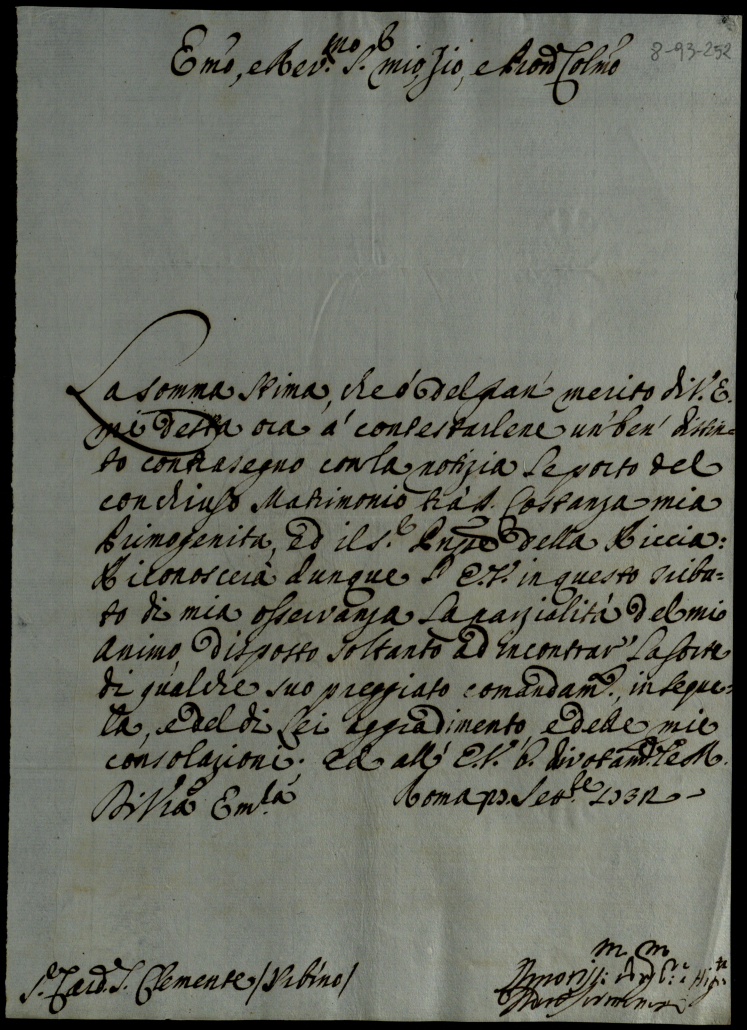 8-93-252
Emo, e Rev.mo S.r mio, Sig., e Pron Colmo
La somma stima, che ò del gran' merito di V. E.
mi desta ora à contestarlene un' ben' distin-
to contrasegno con la notizia Le porto del
conchiuso Matrimonio trà D. Costanza mia
Primogenita, ed il S.r Pnpe della Riccia:
Riconoscerà dunque l' E.V. in questo tribu-
to di mia osservanza La parzialità del mio
Animo, disposto soltanto ad incontrar' La sorte
di qualche suo preggiato comandam.to, in segui-
ta, e del di Lei aggradimento, e delle mie
consolazioni. Ed all' E.V. b. divotam.te Le M.
Di V.ra Em.za Roma Sett.re 1732
S.r Card. S. Clemente / Urbino /